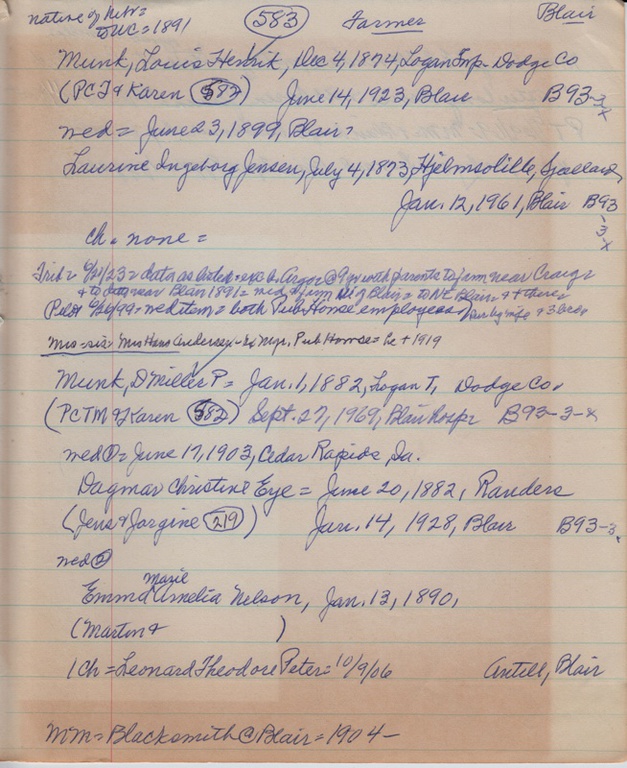 native of Nebr=
DUC=1891
583 Farmer Blair
Munk, Louis Henrik, Dec 4, 1874, Logan Twp- Dodge Co
(PCT & Karen 582) June 14, 1923, Blair B93-3-x
wed= June 23, 1899, Blair=
Laurine Ingeborg Jensen, July 4, 1873, Hjelmsolille, Sjaelland,
Jan. 12, 1961, Blair B93-3-x
ch = none =
Trib= 6/21/23= data as listed + exc b. @ 9 yr with parents to farm near Craig=
+ to near Blair 1891= wed & farm of Blair= to NE Blair + there
Pilot 6/29/99= wed item= both Pub. House employees by wife + 3 bros
Mrs=sis= Mrs Hans Andersen= Ex Mgr. Pub House= he + 1919
Munk, D Miller P= Jan. 1, 1882, Logan T, Dodge Co.
(PCTM & Karen 582) Sept. 27, 1969, Blair Hosp= B93-3-x
wed ①= June 17, 1903, Cedar Rapids, Ia.
Dagmar Christine Eye = June 20, 1882, Randers
(Jens & Jorgine 219) Jan. 14, 1928, Blair B93-3.
wed ②
Emma Marie Amelia Nelson, Jan. 13, 1890,
(Martin & )
1 Ch = Leonard Theodore Peter= 10/9/06 Antell, Blair
MM= Blacksmith @ Blair = 1904-